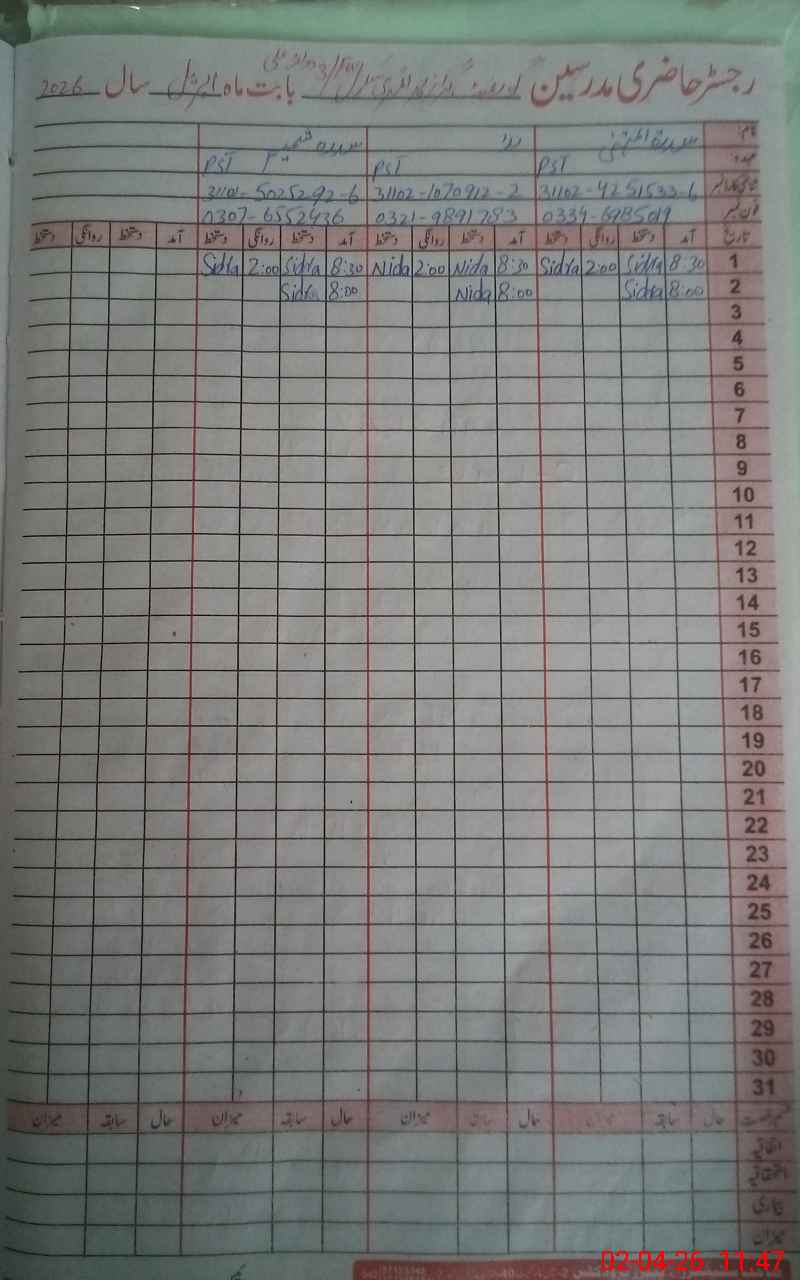 رجسٹر حاضری مدرسین گورنمنٹ بابت ماہ اپریل سال 2026
نام: سدرۃ المنتہیٰ ندا
عہدہ: PST PST PST
31102-4251533-6 31102-1070912-2 31101-5025292-6
فون نمبر 0334-6985019 0321-9891783 0307-6552436
تاریخ آمد دستخط روانگی دستخط آمد دستخط روانگی دستخط آمد دستخط روانگی دستخط آمد دستخط روانگی دستخط
1 8:30 Sidra 2:00 Sidra 8:30 Nida 2:00 Nida 8:30 Sidra 2:00 Sidra
2 8:00 Sidra 8:00 Nida 8:00 Sidra
3
4
5
6
7
8
9
10
11
12
13
14
15
16
17
18
19
20
21
22
23
24
25
26
27
28
29
30
31
حال سابقہ میزان حال سابقہ میزان حال سابقہ میزان حال سابقہ میزان
اتفاقیہ
استحقاقیہ
بیماری
میزان
02-04-26 11:47